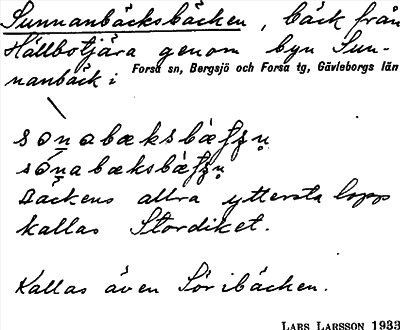 Sunnanbäcksbäcken, bäck från
Hällbotjära genom byn Sun-
nanbäck i Forsa sn, Bergsjö och Forsa tg, Gävleborgs län
Bäckens allra yttersta lopp
kallas Stordiket.
Kallas även Söribäcken.
LARS LARSSON 1933